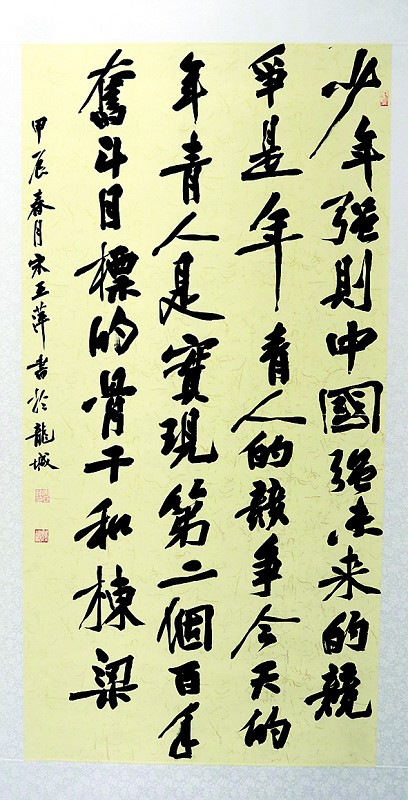 少年强則中國强未来的競
爭是年青人的競争今天的
年青人是實現第二個百年
奮斗目標的骨干和棟梁
甲辰春月宋玉萍書於龍城